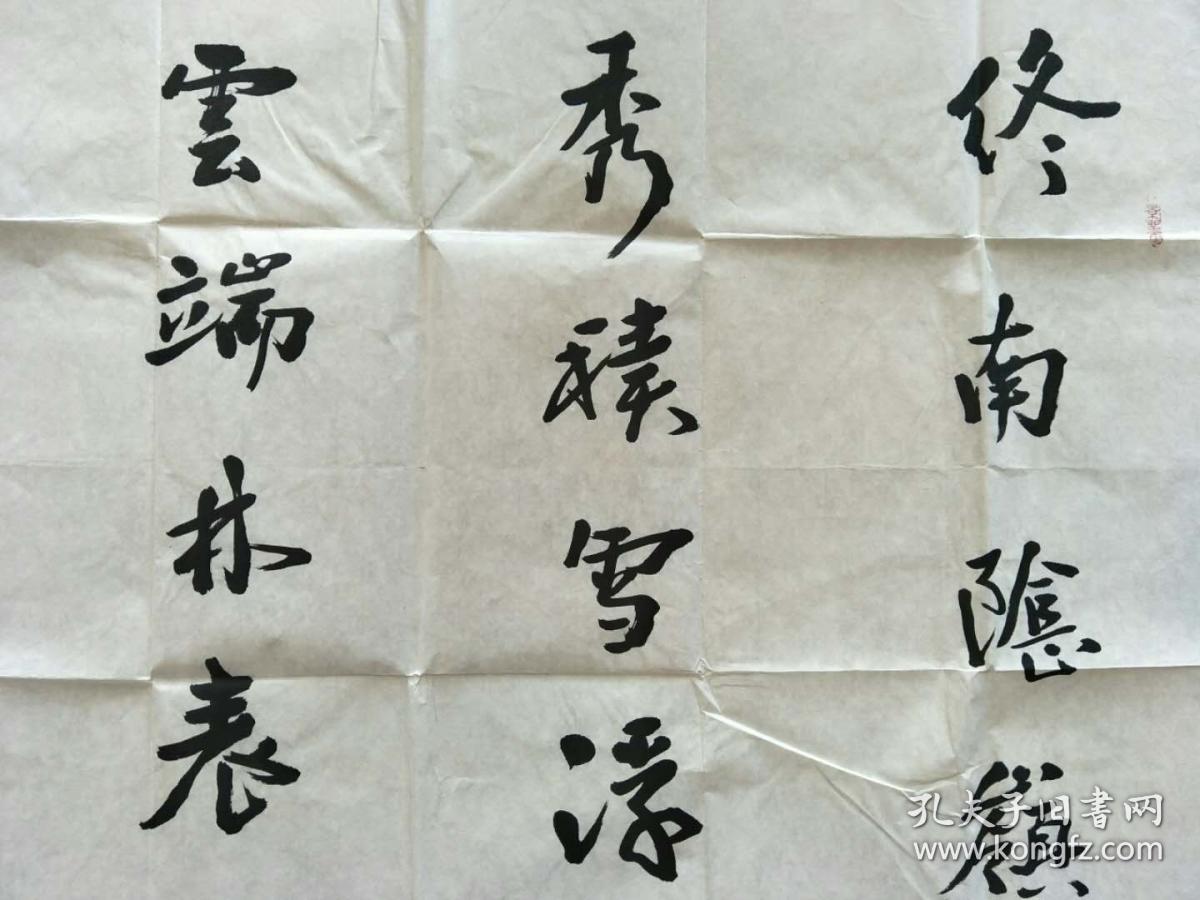 終南陰嶺
秀積雪浮
雲端林表
孔夫子旧書网
www.kongfz.com